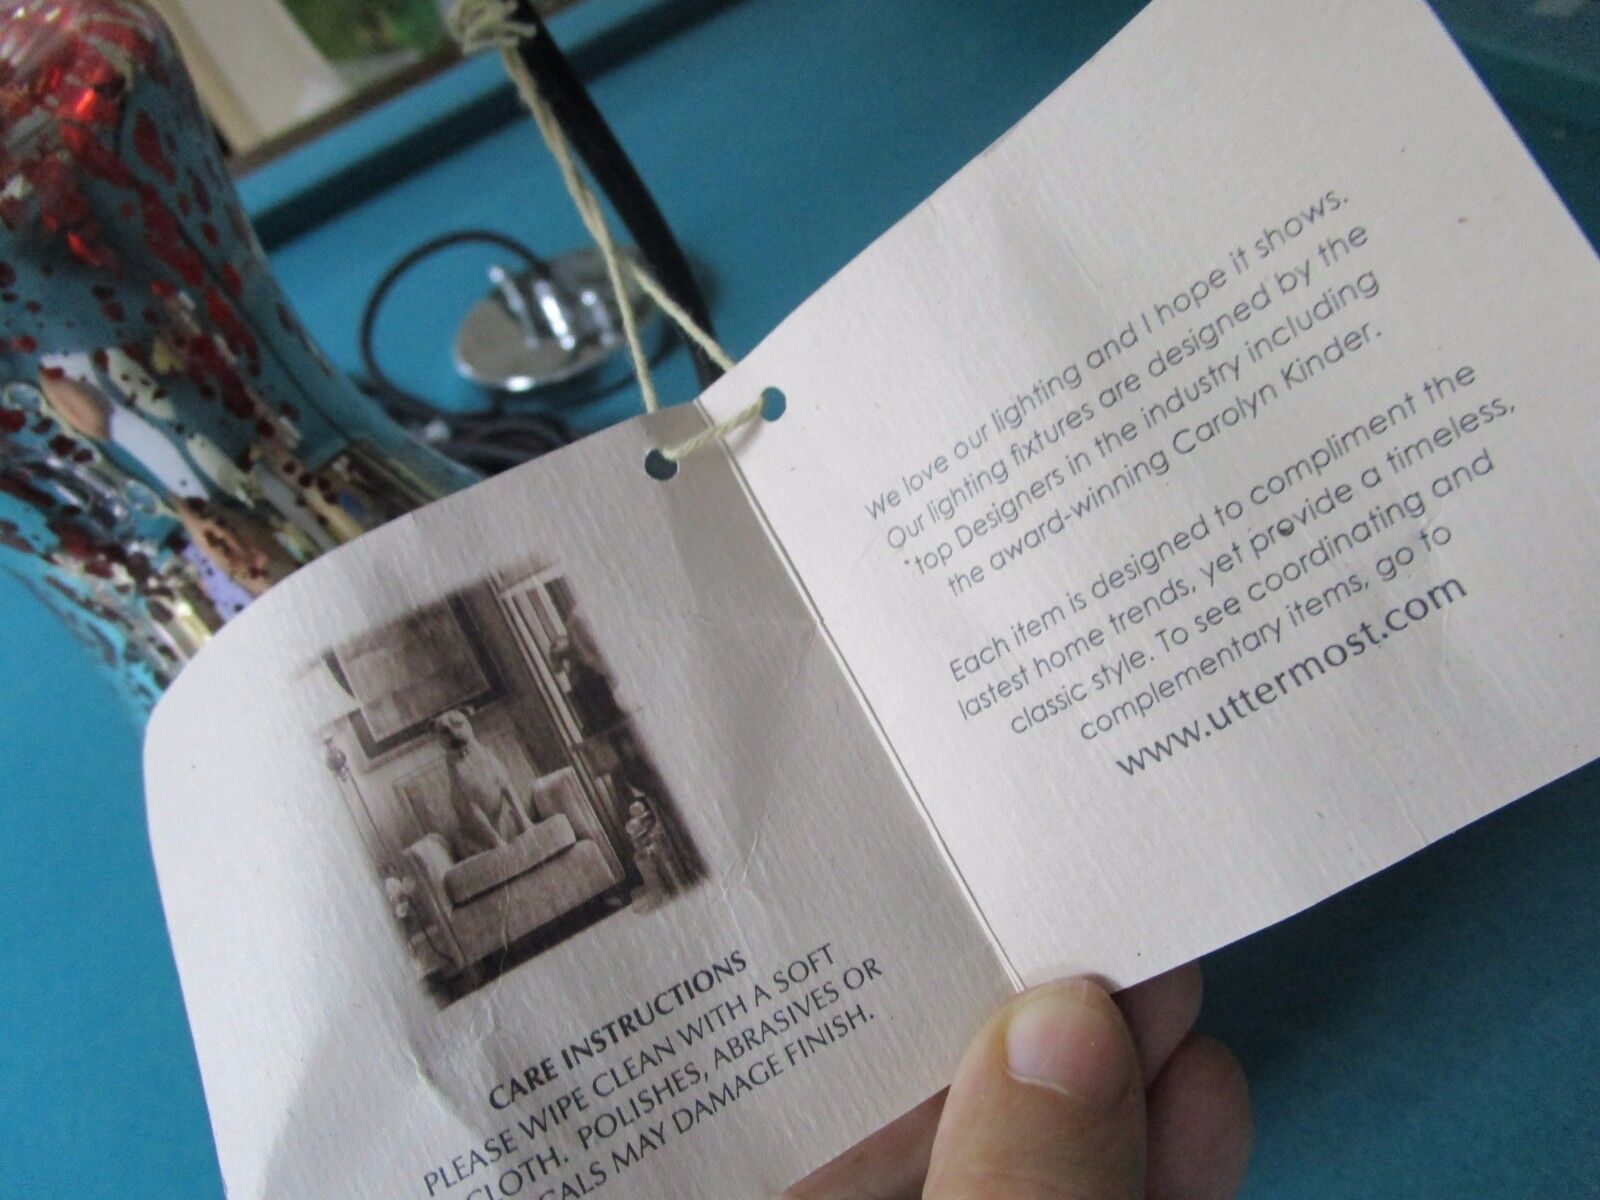 CARE INSTRUCTIONS
PLEASE WIPE CLEAN WITH A SOFT
CLOTH. POLISHES, ABRASIVES OR
MAY DAMAGE FINISH.
We love our lighting and I hope it shows.
Our lighting fixtures are designed by the
top Designers in the industry including
the award-winning Carolyn Kinder.
Each item is designed to compliment the
lastest home trends, yet provide a timeless,
classic style. To see coordinating and
complementary items, go to
www.uttermost.com